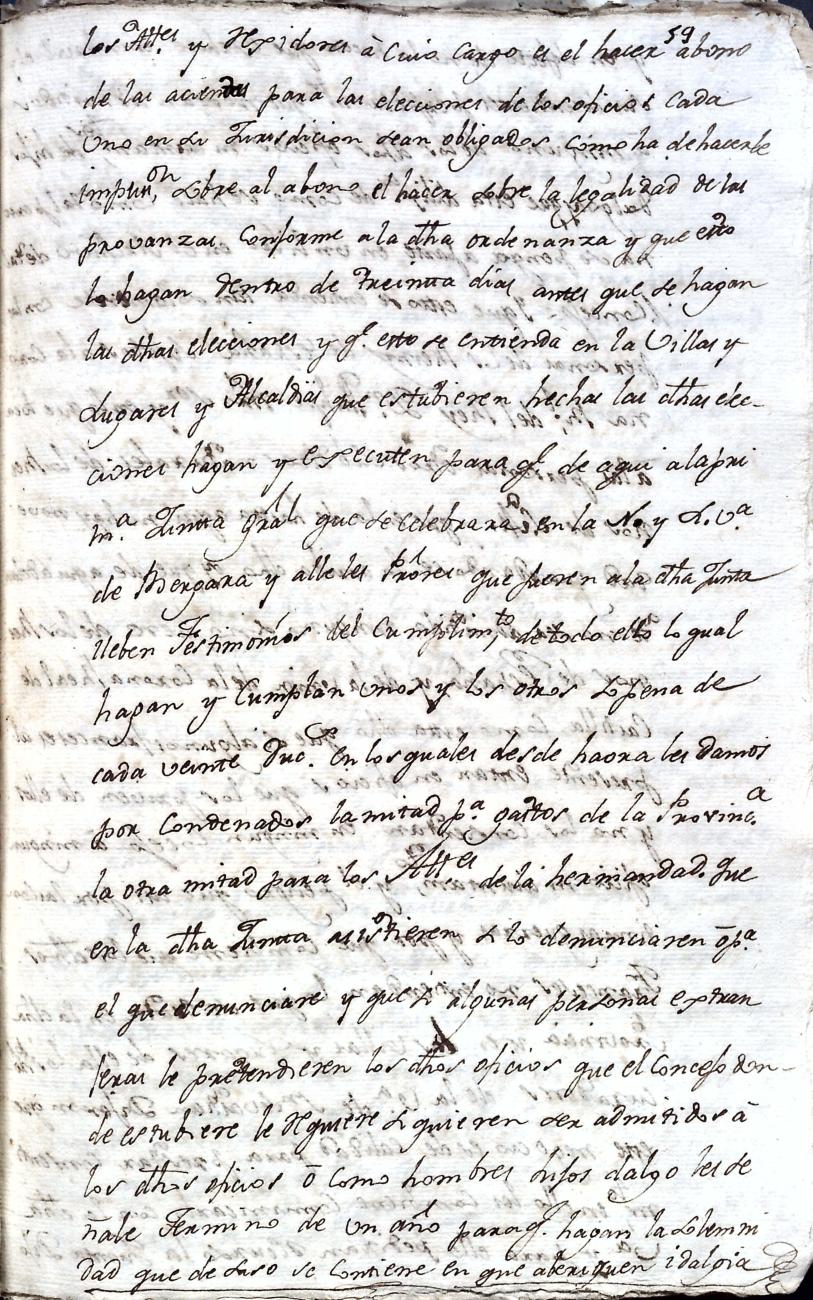 59
los Alles. y rexidores â Cuio Cargo es el hacer abono
de las aciendas para las elecciones de los oficios Cada
Uno en su Jurisdicion sean obligados como ha de hacerle
impusn.on sobre al abono el hacer sobre la legalidad de las
provanzas Conforme a la dha ordenanza y que esto
lo hagan dentro de treinta dias antes que se hagan
las dhas elecciones y q.e esto se entienda en la Villas y
Lugares y Alcaldias que estubieren hechas las dhas elec-
ciones hagan y executen para q.e de aqui a la pri
m.a Junta Gral que se Celebrara en la N. y L. V.a
de Bergara y alle les Prores que fueren a la dha Junta
lleben Testimonios del Cumplim.to de todo ello lo qual
hagan y Cumplan Unos y los otros so pena de
cada veinte Duc.s en los quales desde haora les damos
por Condenados la mitad p.a gastos de la Provinc.a
la otra mitad para los Alles de la hermandad que
en la dha Junta asistieren si lo denunciaren o p.a
el que denunciare y que si algunas personas extran
jeras le pretendieren los dhos oficios que el Concejo don-
de estubiere le requiere si quieren ser admitidos â
los dhos oficios ô como hombres hijos dalgo les se
ñale Termino de Un año para q.e hagan la solemni
dad que de suso se Contiene en que aberiguen idalgia